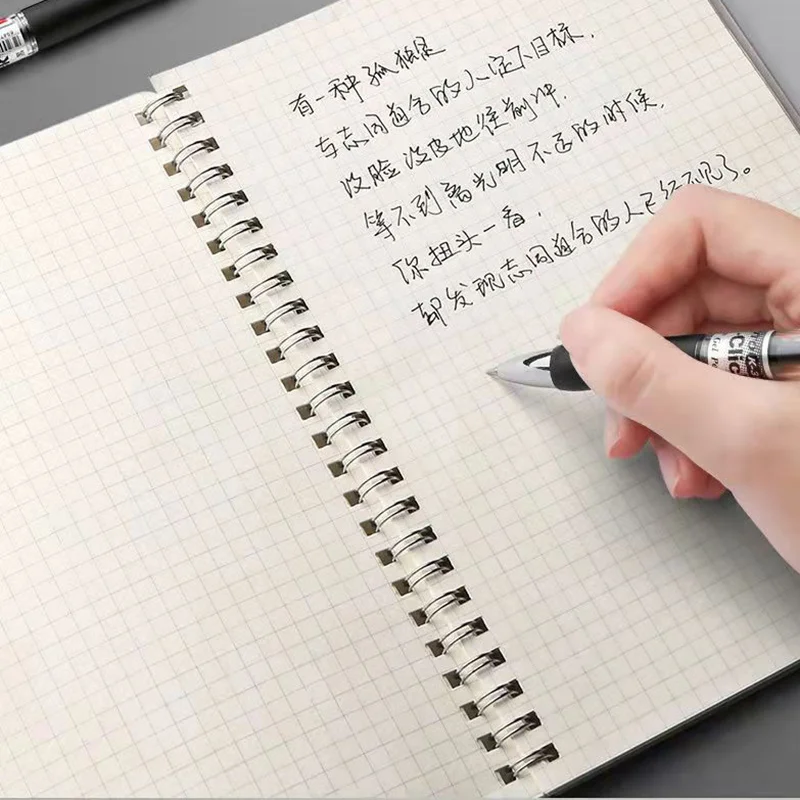 有一种孤独是
与志同道合的人定下目标，
没脸没皮地往前冲．
等不到高光明不迈的时候，
你扭头一看，
却发现志同道合的人已经不见了。
-clic
Gel Pe
K-3